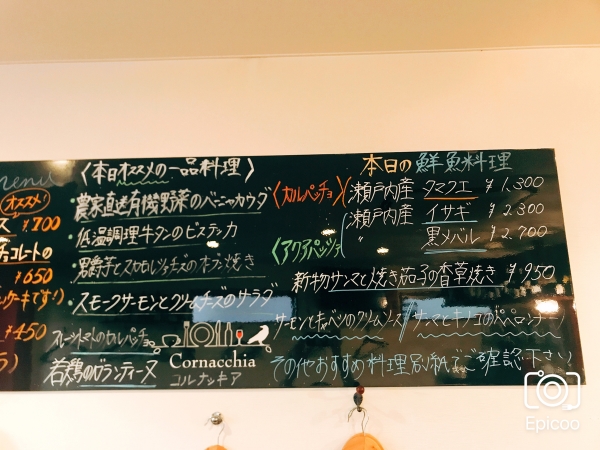 menu
オススメ!
ス ¥700
チョコレートの
¥650
ケーキです!)
¥450
〈本日オススメの一品料理〉
農家直送有機野菜のバーニャカウダ
・低温調理牛タンのビステッカ
男爵芋とスカモルツァチーズのオーブン焼き
・スモークサーモンとクリームチーズのサラダ
フルーツトマトのカルパッチョ
若鶏のガランティーヌ
Cornacchia
コルナッキア
本日の鮮魚料理
〈カルパッチョ〉
瀬戸内産 タマクエ ¥1.300
瀬戸内産 イサギ ¥2.300
〈アクアパッツァ〉
〃 黒メバル ¥2.700
新物サンマと焼き茄子の香草焼き ¥.950
サーモンとキャベツのクリームソース/サンマとキノコのペペロンチーノ
その他おすすめ料理別紙でご確認下さい!
Epicoo